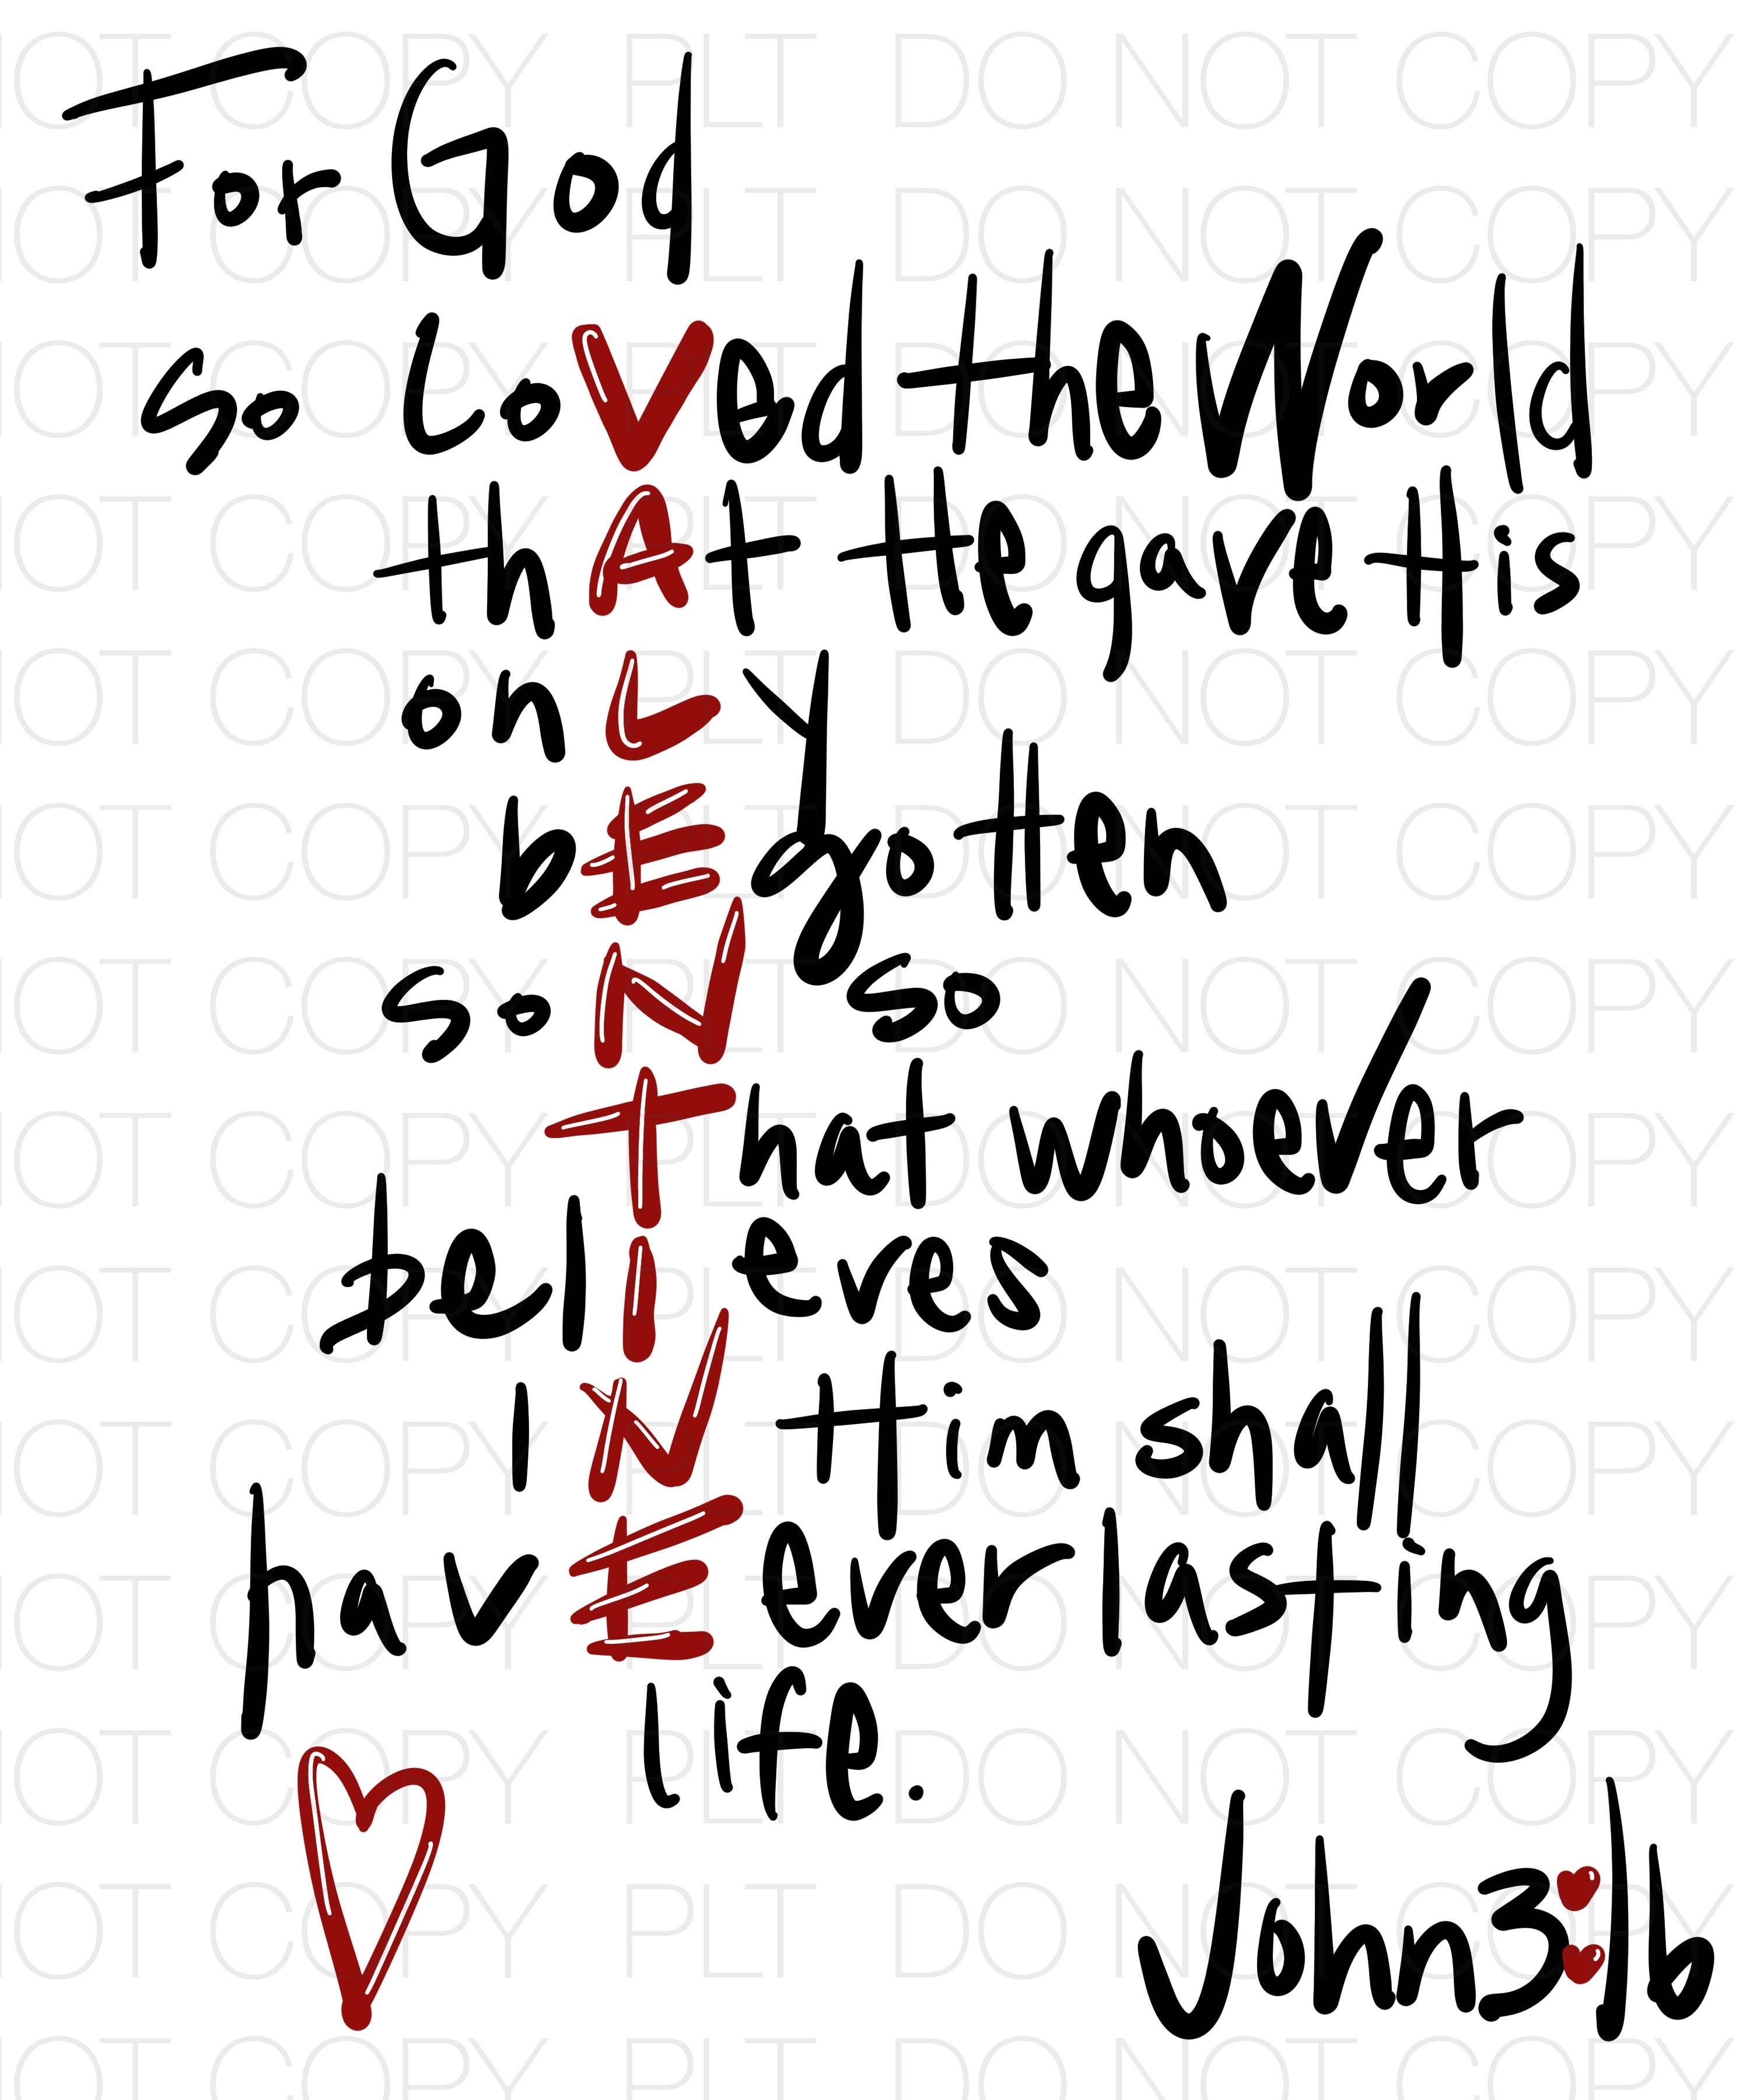 For God
so loVed the World
thAt He gave His
onLy
bEgotten
soN so
That whoever
belIeves
IN Him shall
havE everlasting
life.
John 3:16
DO NOT COPY PLT DO NOT COPY